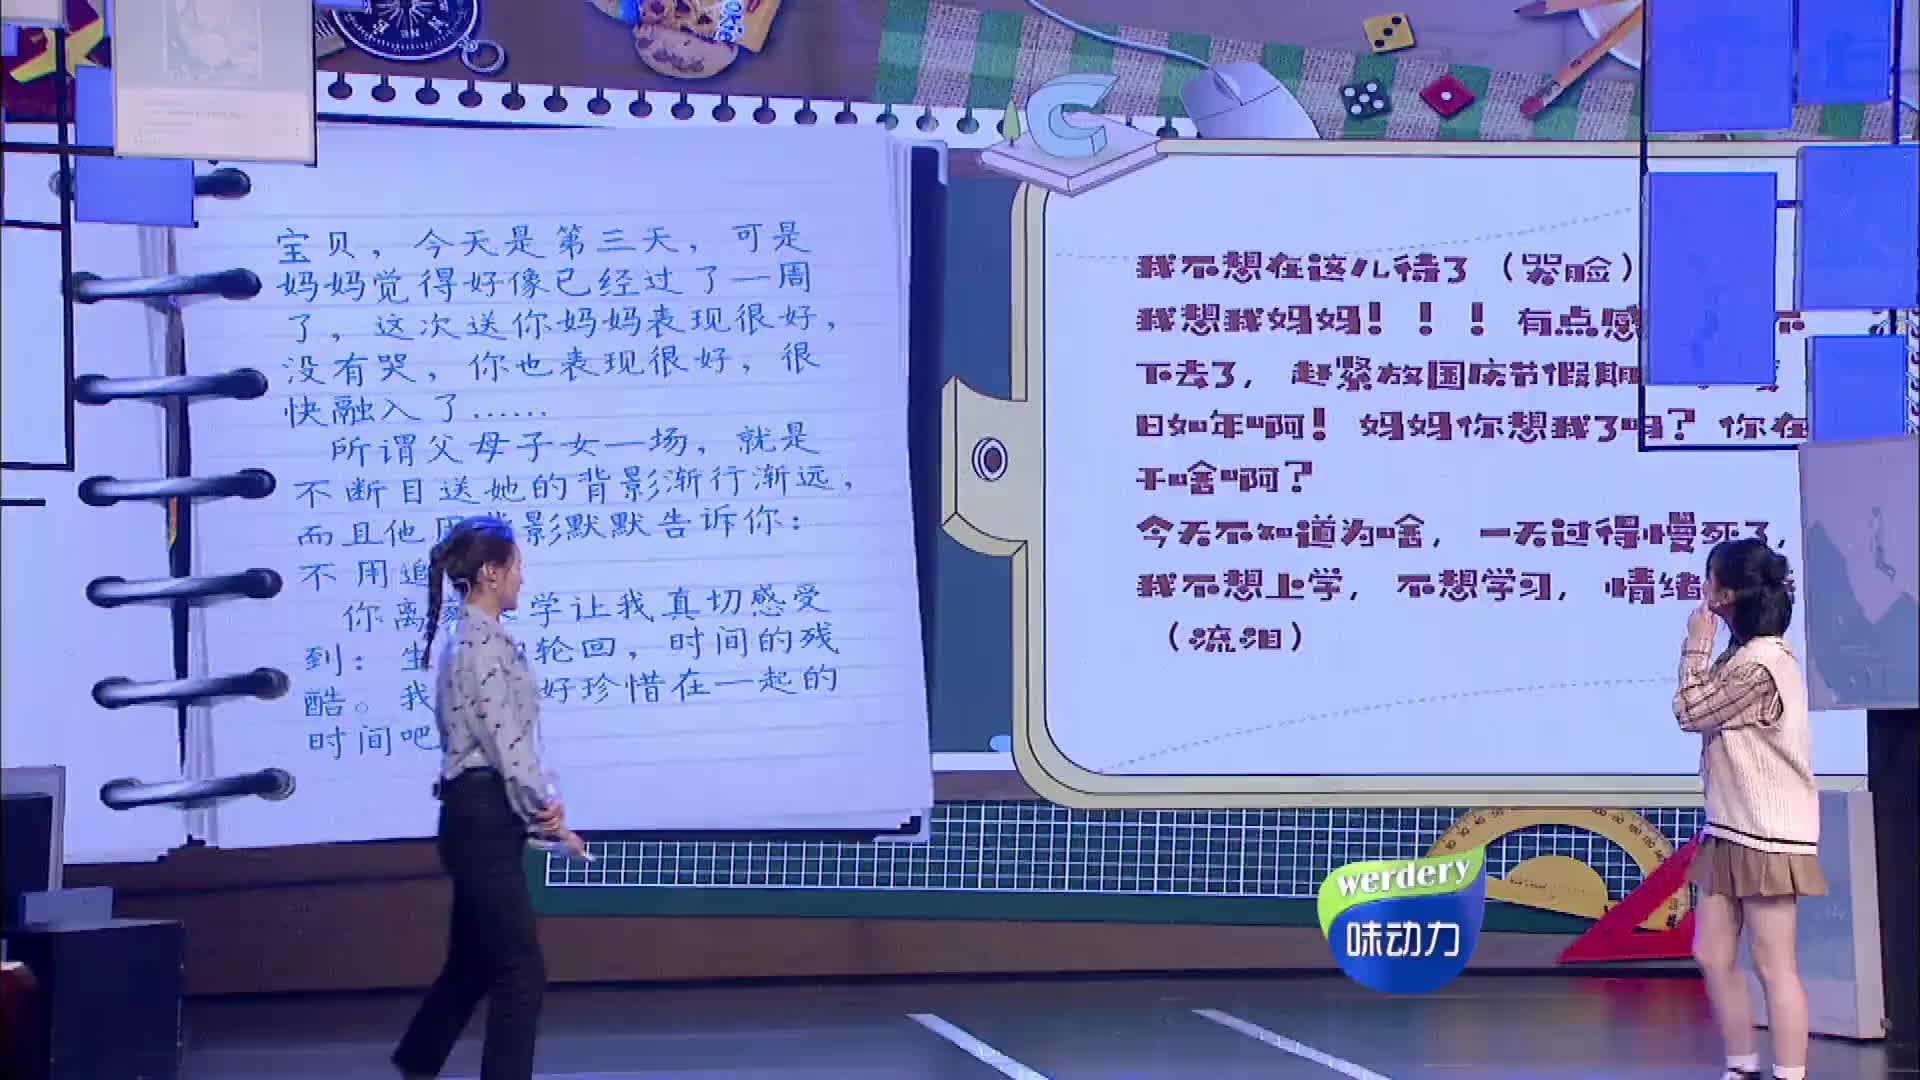 宝贝，今天是第三天，可是
妈妈觉得好像已经过了一周
了，这次送你妈妈表现很好，
没有哭，你也表现很好，很
快融入了……
所谓父母子女一场，就是
不断目送她的背影渐行渐远，
而且他用背影默默告诉你：
不用追
你离 学让我真切感受
到：生 轮回，时间的残
酷。我 好珍惜在一起的
时间吧
我不想在这儿待了（哭脸）
我想我妈妈！！！有点感 不
下去了，赶紧放国庆节假期
日如年啊！妈妈你想我了吗？你在
干啥啊？
今天不知道为啥，一天过得慢死了，
我不想上学，不想学习，情绪
（流泪）
werdery
味动力